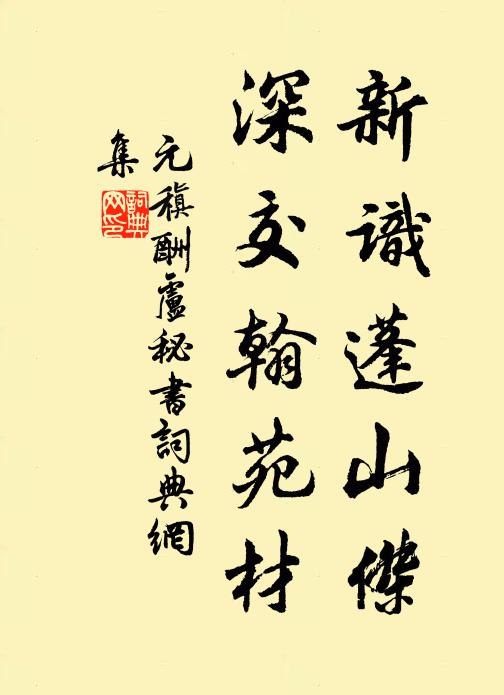 新識蓬山傑
深交翰苑材
元稹酬盧秘書詞典網
集
詞典
网印